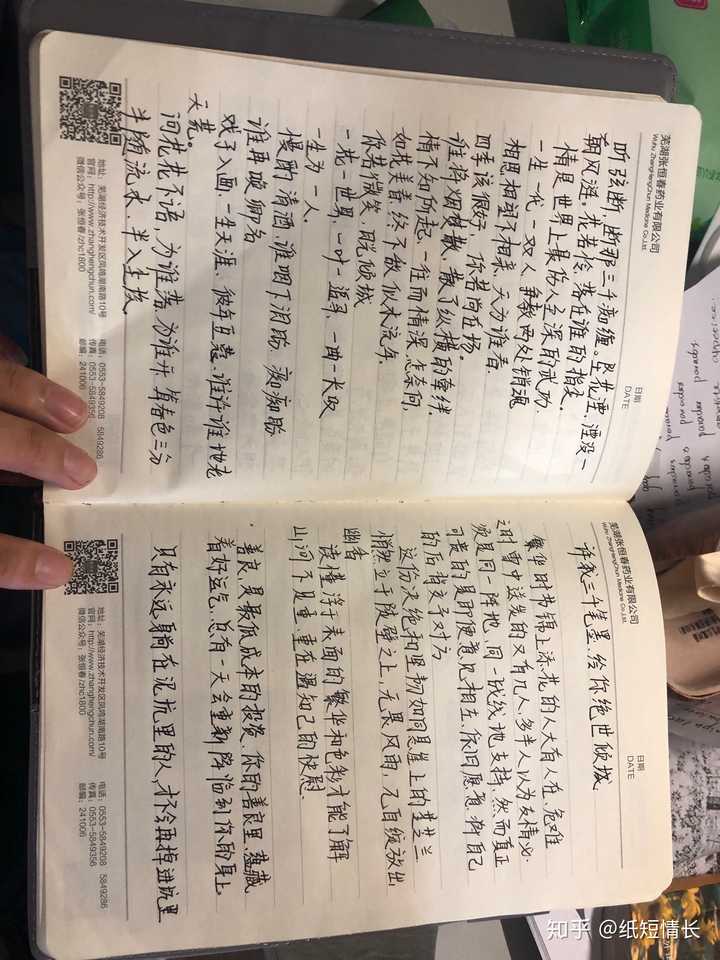 芜湖张恒春药业有限公司
Wuhu ZhangHengChun Medicine Co.,Ltd.
日期
DATE
听弦断,断那三千痴缠。坠花湮,湮没一
朝风涟。花若怜,落在谁的指尖。
情是世界上最伤人至深的武功.
一生一代一双人 争教两处销魂
相思相望不相亲,天为谁春.
四季该很好,你若尚在场。
谁将烟焚散,散了纵横的牵绊.
情不知所起,一往而情深,怎奈何,
如花美眷,终不敌似水流年.
你若微笑,便倾城
一花一世界,一叶一追寻,一曲一长叹
一生为一人.
慢酌清酒,谁咽下泪
谁再唤卿名
戏子入画,一生天涯,彼年豆蔻,谁许谁地老
天荒.
问花花不语,为谁落,为谁开,算春色三分
半随流水,半入尘埃
地址:芜湖经济技术开发区凤鸣湖南路10号
官网:http://www.zhanghengchun.com/
微信公众号:张恒春/zhc1800
电话:0553-5849208 5849286
传真:0553-5849356
邮编:241006
芜湖张恒春药业有限公司
Wuhu ZhangHengChun Medicine Co.,Ltd.
日期
DATE
许我三千笔墨,绘你绝世倾城.
繁华时书锦上添花的人大有人在,危难
之时雪中送炭的又有几人,多半人以为友情必
须是同一阵地,同一战线地支持,然而真正
可贵的是即便意见相左,依旧愿意将自己
的后背交予对方
这份决绝和坚韧如同悬崖上的草兰
悄然立于陡壁之上,无畏风雨,兀自绽放出
幽香
读懂浮于表面的繁华和色彩才能了解
山河下见重,重在遇知己的快慰.
善良,是最低成本的投资,你的善良里,蕴藏
着好运气,总有一天会重新降临到你的身上.
只有永远躺在泥坑里的人,才不会再掉进坑里
地址:芜湖经济技术开发区凤鸣湖南路10号
官网:http://www.zhanghengchun.com/
微信公众号:张恒春/zhc1800
电话:0553-5849208 5849286
传真:0553-5849356
邮编:241006
知乎 @纸短情长